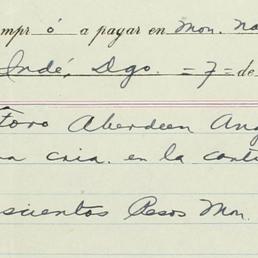 mpr ó a payar en Mon. Na
Indé, Dgo. =7= de
Toro Aberdeen Ang
na cria. en la cant
scientos Pesos Mon.